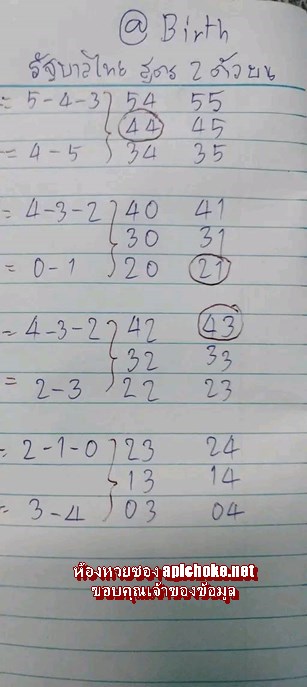 @ Birth
รัฐบาลไทย สูตร 2 ตัวบน
= 5-4-3 } 54 55
44 45
= 4-5 34 35
= 4-3-2 } 40 41
30 31
= 0-1 20 21
= 4-3-2 } 42 43
32 33
= 2-3 22 23
= 2-1-0 } 23 24
13 14
= 3-4 03 04
ห้องหวยซอง apichoke.net
ขอบคุณเจ้าของข้อมูล